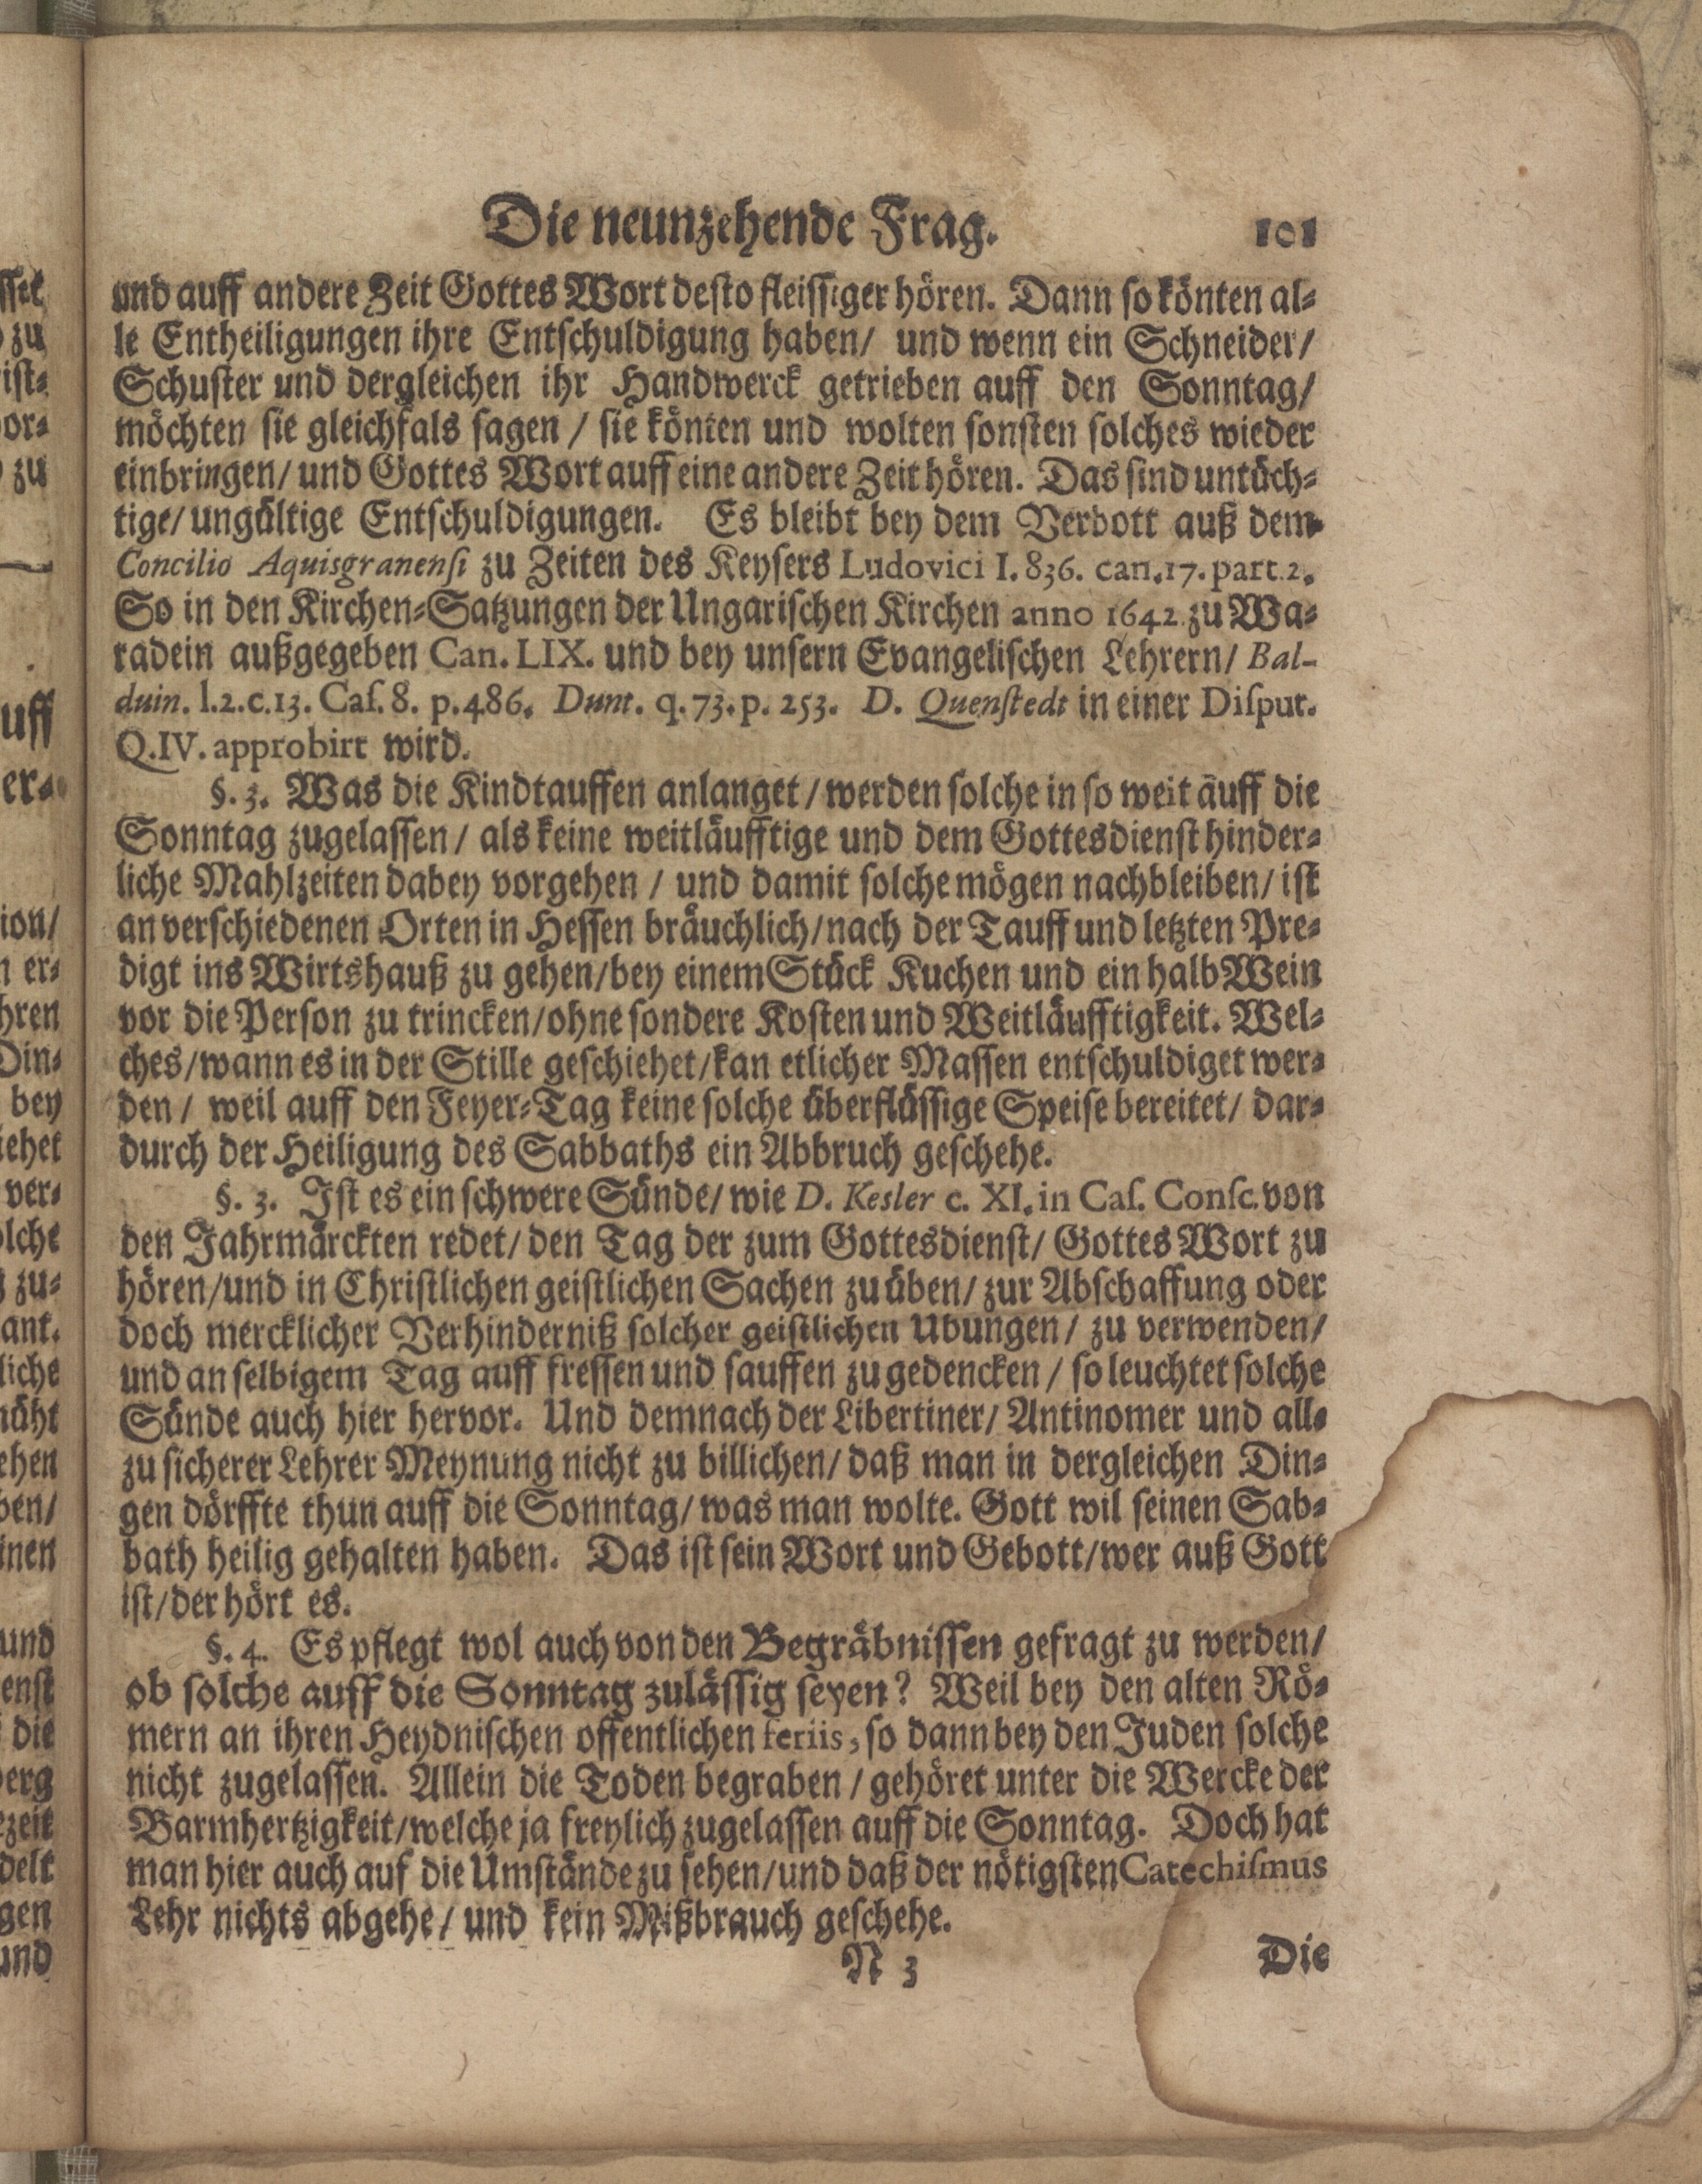 Die neunzehende Frag. 101
und auff andere Zeit Gottes Wort desto fleissiger hören. Dann so könten al-
le Entheiligungen ihre Entschuldigung haben/ und wenn ein Schneider/
Schuster und dergleichen ihr Handwerck getrieben auff den Sonntag/
möchten sie gleichfals sagen / sie könten und wolten sonsten solches wieder
einbringen/ und Gottes Wort auff eine andere Zeit hören. Das sind untüch-
tige/ ungültige Entschuldigungen. Es bleibt bey dem Verbott auß dem
Concilio Aquisgranensi zu Zeiten des Keysers Ludovici I. 836. can. 17. part. 2.
So in den Kirchen-Satzungen der Ungarischen Kirchen anno 1642. zu Wa-
radein außgegeben Can. LIX. und bey unsern Evangelischen Lehrern/ Bal-
duin. l. 2. c. 13. Cas. 8. p. 486. Dunt. q. 73. p. 253. D. Quenstedt in einer Disput.
Q. IV. approbirt wird.
§. 3. Was die Kindtauffen anlanget / werden solche in so weit auff die
Sonntag zugelassen / als keine weitläufftige und dem Gottesdienst hinder-
liche Mahlzeiten dabey vorgehen / und damit solche mögen nachbleiben/ ist
an verschiedenen Orten in Hessen bräuchlich/ nach der Tauff und letzten Pre-
digt ins Wirtshauß zu gehen/ bey einem Stück Kuchen und ein halb Wein
vor die Person zu trincken/ ohne sondere Kosten und Weitläufftigkeit. Wel-
ches/ wann es in der Stille geschiehet/ kan etlicher Massen entschuldiget wer-
den / weil auff den Feyer-Tag keine solche überflüssige Speise bereitet/ dar-
durch der Heiligung des Sabbaths ein Abbruch geschehe.
§. 3. Ist es ein schwere Sünde/ wie D. Kesler c. XI. in Cas. Consc. von
den Jahrmärckten redet/ den Tag der zum Gottesdienst/ Gottes Wort zu
hören/ und in Christlichen geistlichen Sachen zu üben/ zur Abschaffung oder
doch mercklicher Verhinderniß solcher geistlichen Ubungen / zu verwenden/
und an selbigem Tag auff fressen und sauffen zu gedencken / so leuchtet solche
Sünde auch hier hervor. Und demnach der Libertiner/ Antinomer und all-
zu sicherer Lehrer Meynung nicht zu billichen/ daß man in dergleichen Din-
gen dörffte thun auff die Sonntag/ was man wolte. Gott wil seinen Sab-
bath heilig gehalten haben. Das ist sein Wort und Gebott/ wer auß Gott
ist/ der hört es.
§. 4. Es pflegt wol auch von den Begräbnissen gefragt zu werden/
ob solche auff die Sonntag zulässig seyen? Weil bey den alten Rö-
mern an ihren Heydnischen offentlichen feriis, so dann bey den Juden solche
nicht zugelassen. Allein die Toden begraben / gehöret unter die Wercke der
Barmhertzigkeit/ welche ja freylich zugelassen auff die Sonntag. Doch hat
man hier auch auf die Umstände zu sehen/ und daß der nötigsten Catechismus
Lehr nichts abgehe/ und kein Mißbrauch geschehe.
N 3 Die